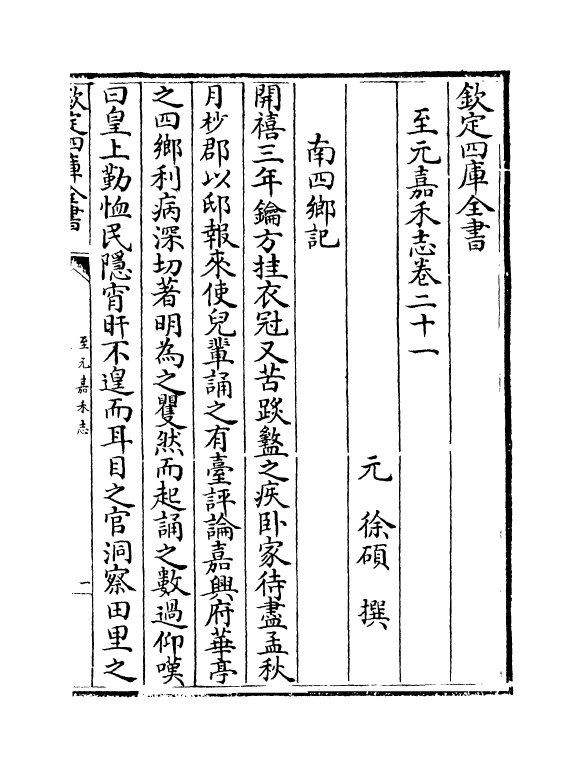 欽定四庫全書
至元嘉禾志卷二十一
元 徐碩 撰
南四鄉記
開禧三年鑰方挂衣冠又苦跋盭之疾卧家待盡孟秋
月杪郡以邸報來使兒輩誦之有臺評論嘉興府華亭
之四鄉利病深切著明為之矍然而起誦之數過仰嘆
曰皇上勤恤民隱宵旰不遑而耳目之官洞察田里之
欽定四庫全書
至元嘉禾志
一